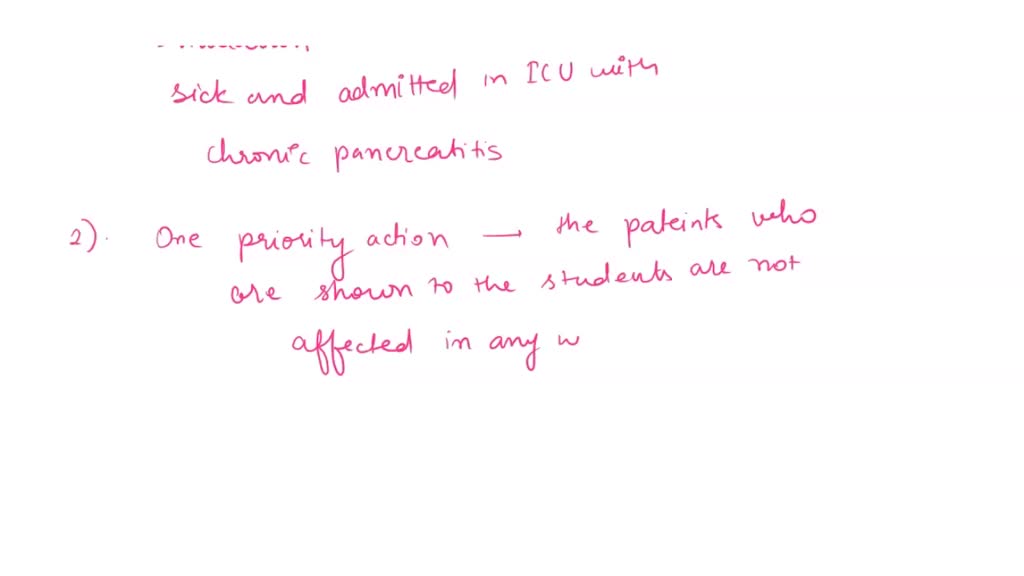 sick and admitted in ICU with
chronic pancreatitis
2). One priority action → the pateints who
are shown to the students are not
affected in any w